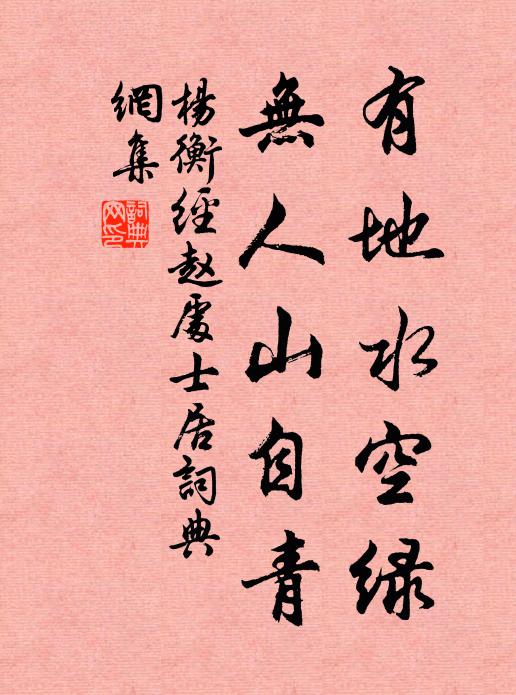 有地水空绿
無人山自青
楊衡經赵處士居詞典
網集
詞典网印